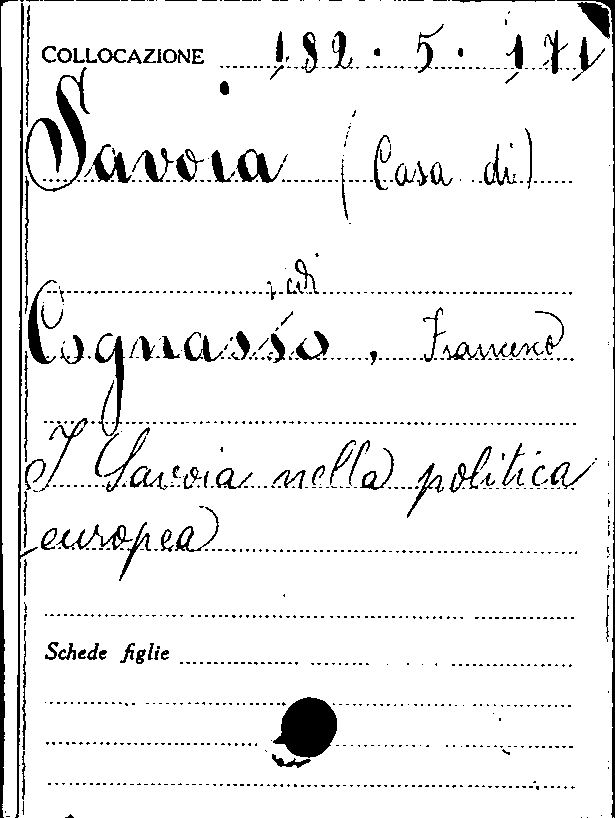 COLLOCAZIONE 182.5.171
Savoia (Casa di)
vedi
Cognasso, Francesco
I Savoia nella politica
europea
Schede figlie